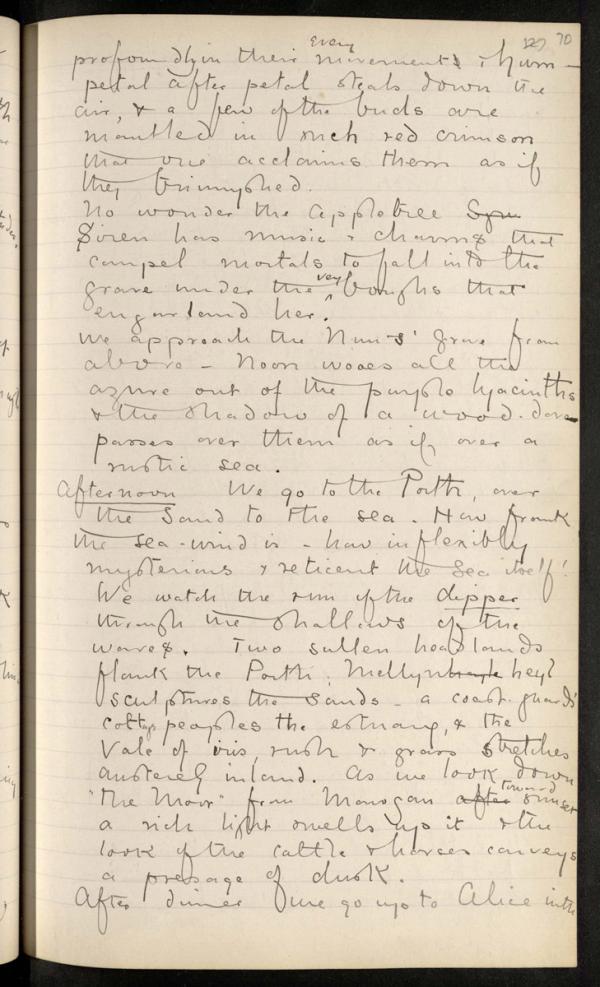 127 70
every
profoundly in their movements, hum-
petal after petal steals down the
air, & a few of the buds are
mantled in such red crimson
that one acclaims them as if
they triumphed.
No wonder the appletree Syre
Siren has music & charms that
compel mortals to fall into the
very
grave under the boughs that
engarland her.
We approach the Nuns' grave from
above - Noon wooes all the
azure out of the purple hyacinths
& the shadow of a wood-dove
passes over them as if over a
rustic sea.
Afternoon We go to the Porth, over
the sand to the sea. How frank
the sea-wind is - how inflexibly
mysterious & reticent the sea itself!
We watch the run of the dipper
through the shallows of the
waves. Two sullen headlands
flank the Porth. Mellyn heyl
sculptures the sands - a coast-guards'
cottage peoples the estuary, & the
Vale of iris, rush & grass stretches
austerely inland. As we look down
toward
"The Moor" from Manogan after sunset
a rich light swells up it & the
look of the cattle & horses conveys
a presage of dusk.
After dinner we go up to Alice in the